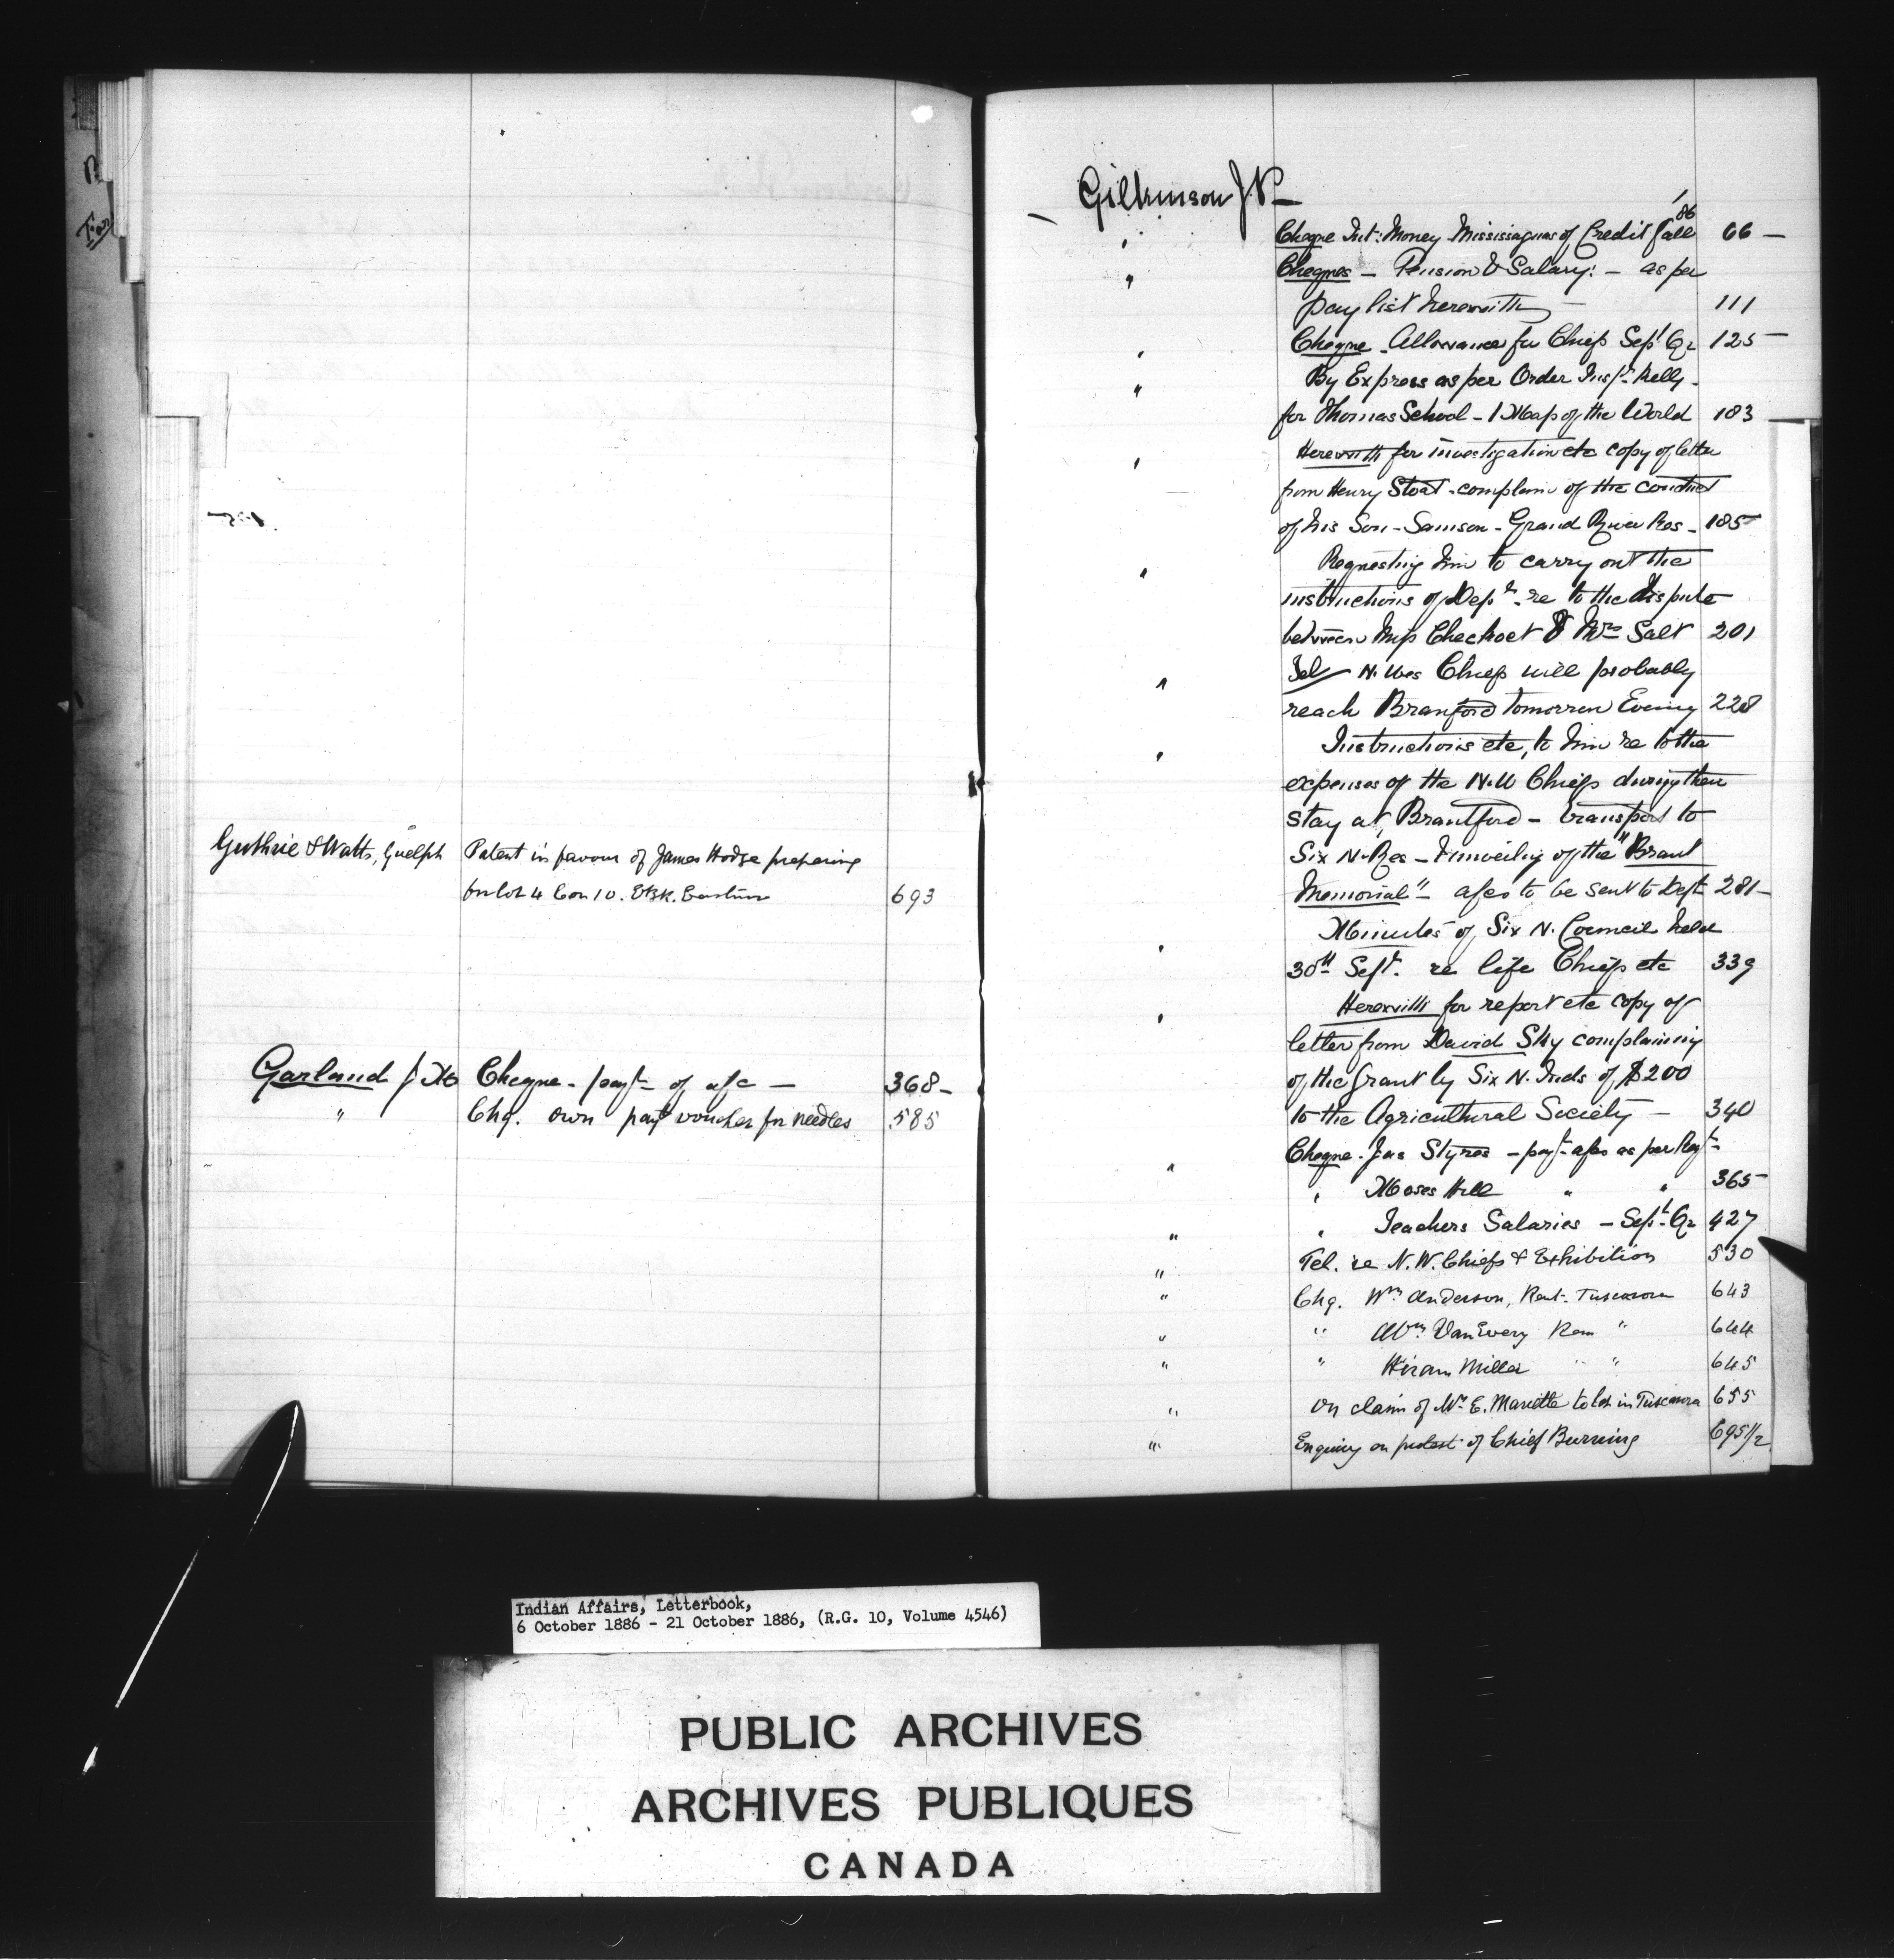 Guthrie & Watts, Guelph Patent in favour of James Hodge preparing
for lot 4 Con 10. 693
Garland J Cheque - payt of a/c — 368 -
" Chq. own payt voucher for needles 585
Gilkinson J
Cheque Int: Money Mississaguas of Credit fall 86 66 —
" Cheques — Pension & Salary: — as per
pay list herewith — 111
" Cheque - Allowance for Chiefs Sept Qr 125 —
" By Express as per Order Inspr Kelly -
for Thomas School - 1 Map of the World 183
" Herewith for investigation etc copy of letter
from Henry Stoat - complain of the conduct
of his Son - Samson - Grand River Res - 185
" Requesting him to carry out the
instructions of Dept. re to the dispute
between Miss Chechock & Mrs Salt 201
" Tel N. Wes Chiefs will probably
reach Branford tomorrow Evening 228
" Instructions etc, to him re to the
expenses of the N.W Chiefs during their
stay at Brantford - transport to
Six N. Res - & unveiling of the "Brant
Memorial" - a/cs to be sent to Dept 281 -
" Minutes of Six N. Council held
30th Sept. re life Chiefs etc 339
" Herewith for report etc copy of
letter from David Sky complaining
of the Grant by Six N. Inds of $200
to the Agricultural Society — 340
" Cheque - Jas Styres - payt a/cs as per Reqt
" Moses Hill " " 365
" " Teachers Salaries - Sept Qr 427
" Tel. re N. W. Chiefs & Exhibition 530
" Chq. Wm Anderson, Rent - Tuscarora 643
" " Wm VanEvery Rem " 644
" " Hiram Miller " " 645
" On claim of Mr E. Mariette to lot in Tuscarora 655
" Enquiry on protest of Chief Burning 695 1/2
Indian Affairs, Letterbook,
6 October 1886 - 21 October 1886, (R.G. 10, Volume 4546)
PUBLIC ARCHIVES
ARCHIVES PUBLIQUES
CANADA